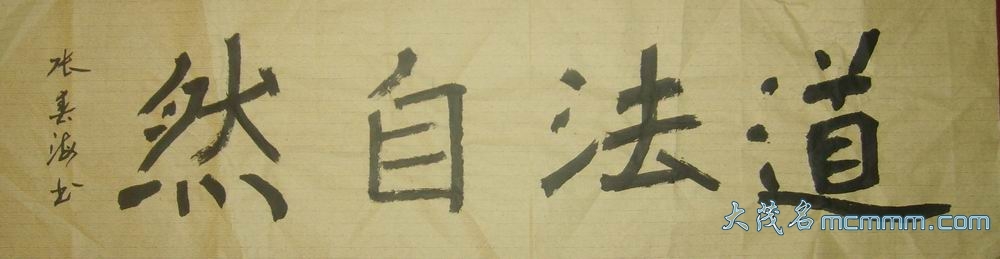 道法自然
张春海书
大茂名mcmmm.com